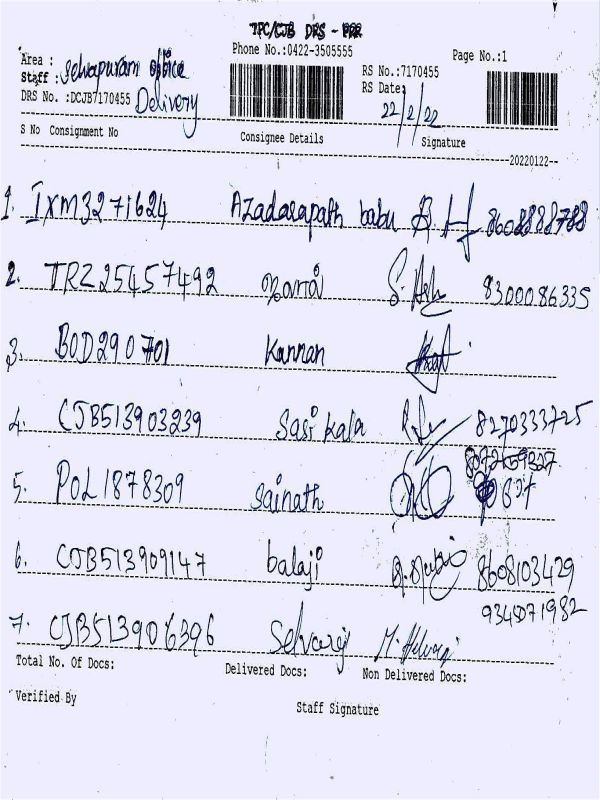 TPC/CJB DRS - PRR
Phone No.:0422-3505555
Page No.:1
Area : Selvapuram office
Staff : Delivery
DRS No. :DCJB7170455
RS No.:7170455
RS Date: 22/2/22
S No Consignment No Consignee Details Signature
20220122--
1. IXM3271624 Azadarapath babu 8608888788
2. TRZ25457492 8300086335
3. BOD290701 Kannan
4. CJB513903239 Sasikala 8270333725
5. POL1878309 Sainath
6. CJB513909147 balaji 8608103429
7. CJB513906396 Selvaraj M. Selvaraj 9345071982
Total No. Of Docs: Delivered Docs: Non Delivered Docs:
Verified By Staff Signature